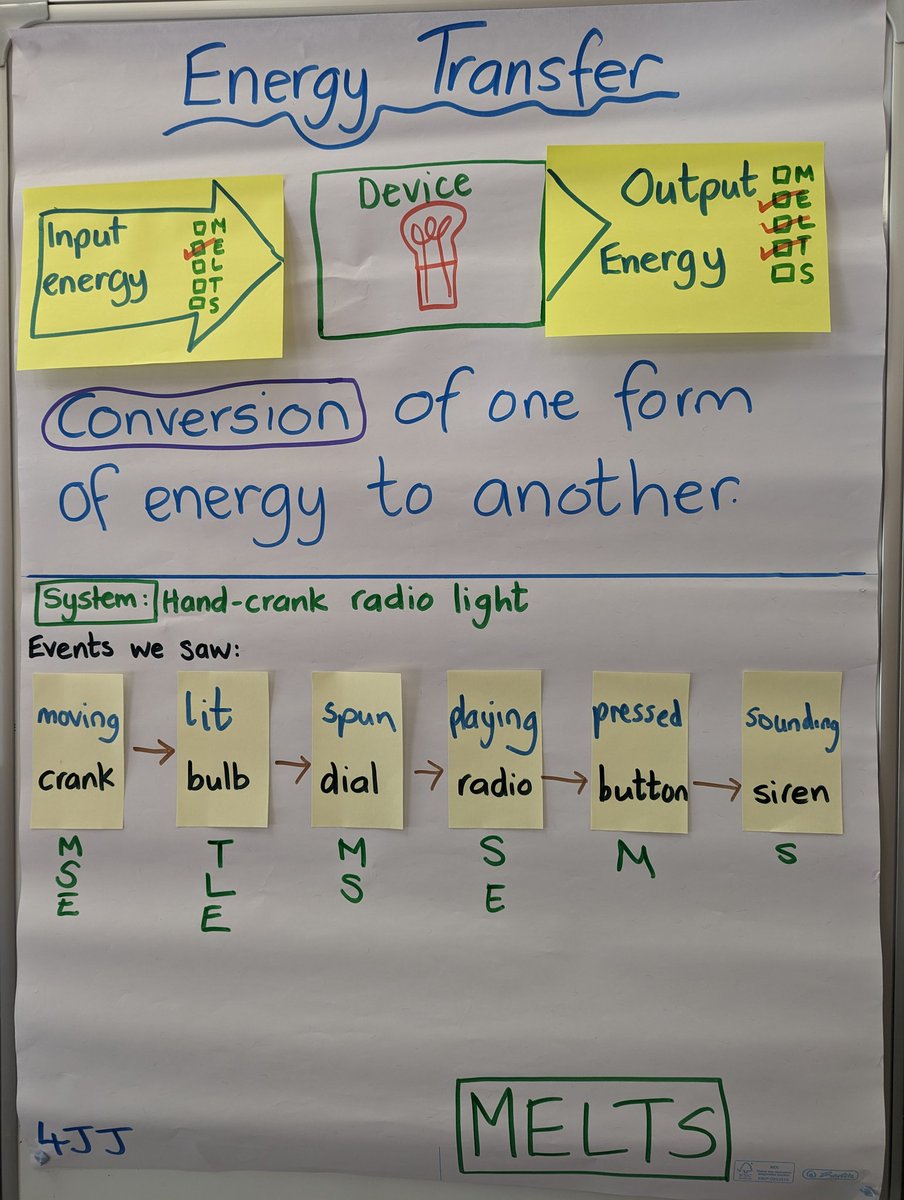 Energy Transfer
Input
energy
M
E
L
T
S
Device
Output
Energy
M
E
L
T
S
Conversion of one form
of energy to another.
System: Hand-crank radio light
Events we saw:
moving
crank
M
S
E
lit
bulb
T
L
E
spun
dial
M
S
playing
radio
S
E
pressed
button
M
sounding
siren
S
4JJ
MELTS